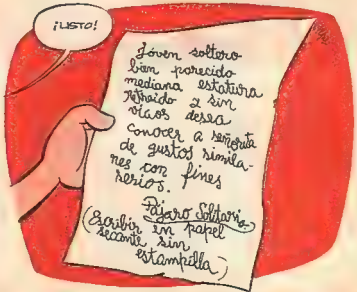 ¡LISTO!
Jóven soltero
bien parecido
mediana estatura
retraido y sin
vicios desea
conocer a señorita
de gustos simila-
res con fines
serios.
Pájaro Solitario
(Escribir en papel
secante sin
estampilla)